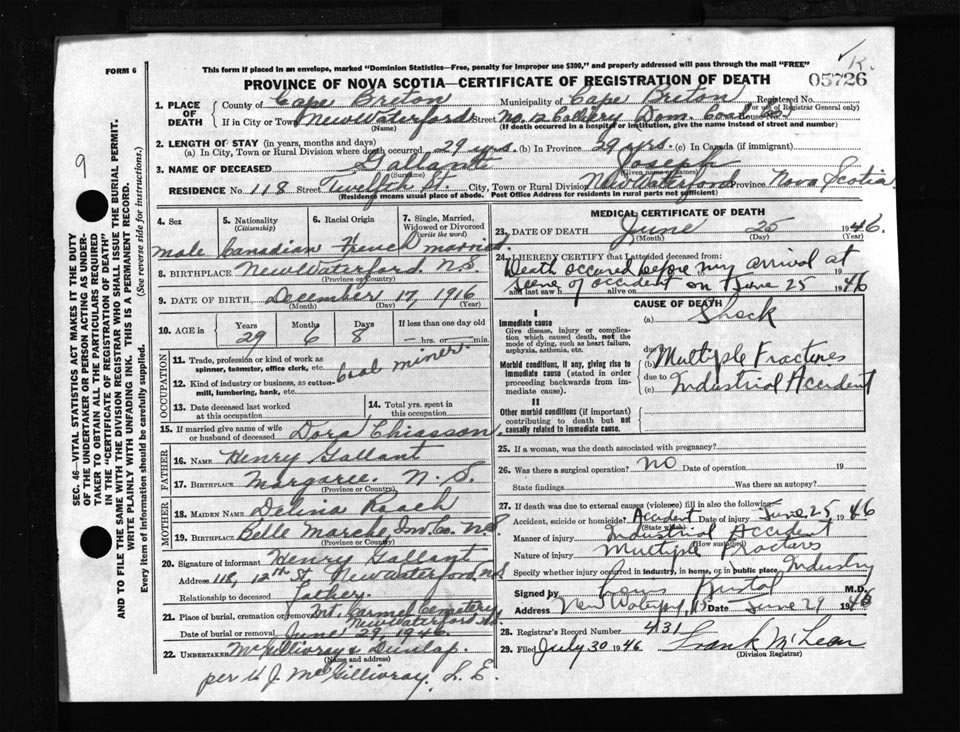 FORM 6
This form if placed in an envelope, marked "Dominion Statistics—Free, penalty for improper use $300," and properly addressed will pass through the mail "FREE"
K.
PROVINCE OF NOVA SCOTIA—CERTIFICATE OF REGISTRATION OF DEATH
05726
9
SEC. 46—VITAL STATISTICS ACT MAKES IT THE DUTY
OF THE UNDERTAKER OR PERSON ACTING AS UNDER-
TAKER TO OBTAIN ALL THE PARTICULARS REQUIRED
IN THE "CERTIFICATE OF REGISTRATION OF DEATH"
AND TO FILE THE SAME WITH THE DIVISION REGISTRAR WHO SHALL ISSUE THE BURIAL PERMIT.
WRITE PLAINLY WITH UNFADING INK. THIS IS A PERMANENT RECORD.
Every item of information should be carefully supplied. (See reverse side for instructions.)
1. PLACE OF DEATH
County of Cape Breton Municipality of Cape Breton Registered No.
(For use of Registrar General only)
If in City or Town New Waterford Street No. 12 Colliery Dom. Coal Co. House No.
(Name) (If death occurred in a hospital or institution, give the name instead of street and number)
2. LENGTH OF STAY (in years, months and days)
(a) In City, Town or Rural Division where death occurred 29 yrs. (b) In Province 29 yrs. (c) In Canada (if immigrant)
3. NAME OF DECEASED Gallant Joseph
(Surname) (Given name or names)
RESIDENCE No. 118 Street Twelfth St. City, Town or Rural Division New Waterford Province Nova Scotia
(Residence means usual place of abode. Post Office Address for residents in rural parts not sufficient)
4. Sex 5. Nationality (Citizenship) 6. Racial Origin 7. Single, Married, Widowed or Divorced (write the word)
male Canadian French married
8. BIRTHPLACE New Waterford N.S.
(Province or Country)
9. DATE OF BIRTH December 17, 1916
(Month) (Day) (Year)
10. AGE in Years Months Days If less than one day
29 6 8 — hrs. or min.
OCCUPATION
11. Trade, profession or kind of work as spinner, teamster, office clerk, etc. Coal miner
12. Kind of industry or business, as cotton-mill, lumbering, bank, etc.
13. Date deceased last worked at this occupation
14. Total yrs. spent in this occupation
15. If married give name of wife or husband of deceased Dora Chiasson
FATHER
16. NAME Henry Gallant
17. BIRTHPLACE Margaree N.S.
(Province or Country)
MOTHER
18. MAIDEN NAME Delina Roach
19. BIRTHPLACE Belle Marche Inv. Co. N.S.
(Province or Country)
20. Signature of informant Henry Gallant
Address 118, 12th St. New Waterford, N.S
Relationship to deceased father.
21. Place of burial, cremation or removal Mt. Carmel Cemetery
New Waterford N.S.
Date of burial or removal June 29, 1946
22. UNDERTAKER McGillivray & Dunlap.
(Name and address)
per J. McGillivray, L.E.
MEDICAL CERTIFICATE OF DEATH
23. DATE OF DEATH June 25 1946.
(Month) (Day) (Year)
24. I HEREBY CERTIFY that I attended deceased from:
Death occured before my arrival at 19
scene of accident on June 25 1946
and last saw h alive on
CAUSE OF DEATH
I
Immediate cause
Give disease, injury or complication which caused death, not the mode of dying, such as heart failure, asphyxia, asthenia, etc.
(a) Shock
due to
Morbid conditions, if any, giving rise to immediate cause (stated in order proceeding backwards from immediate cause).
(b) Multiple Fractures
due to
(c) Industrial Accident
II
Other morbid conditions (if important) contributing to death but not causally related to immediate cause.
25. If a woman, was the death associated with pregnancy?
26. Was there a surgical operation? NO Date of operation 19
State findings Was there an autopsy?
27. If death was due to external causes (violence) fill in also the following:
Accident, suicide or homicide? Accident Date of injury June 25 1946
(State which)
Manner of injury Industrial Accident
(How sustained)
Nature of injury Multiple Fractures
Specify whether injury occurred in industry, in home, or in public place Industry
Signed by M.D.
Address New Waterford, NS Date June 29 1946
28. Registrar's Record Number 431
29. Filed July 30 1946 Frank McLean
(Division Registrar)